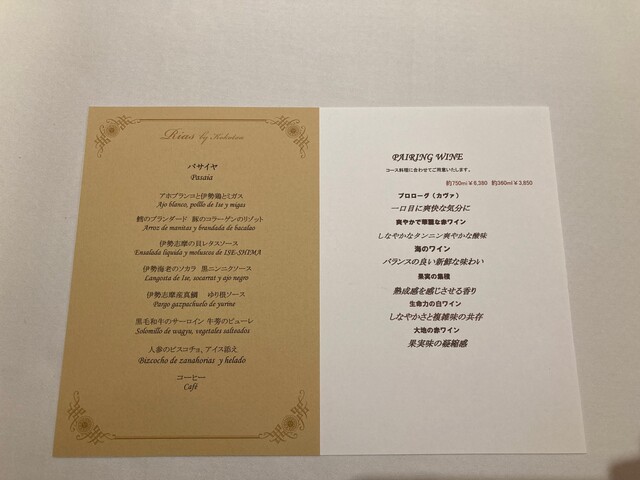 Rias by Kokotxa
パサイヤ
Pasaia
アホブランコと伊勢鶏とミガス
Ajo blanco, polllo de Ise y migas
鱈のブランダード 豚のコラーゲンのリゾット
Arroz de manitas y brandada de bacalao
伊勢志摩の貝レタスソース
Ensalada liquida y moluscos de ISE-SHIMA
伊勢海老のソカラ 黒ニンニクソース
Langosta de Ise, socarrat y ajo negro
伊勢志摩産真鯛 ゆり根ソース
Pargo gazpachuelo de yurine
黒毛和牛のサーロイン 牛蒡のピューレ
Solomillo de wagyu, vegetales salteados
人参のビスコチョ、アイス添え
Bizcocho de zanahorias y helado
コーヒー
Café
PAIRING WINE
コース料理に合わせてご用意いたします。
約750ml￥8,380 約360ml￥3,850
プロローグ（カヴァ）
一口目に爽快な気分に
爽やかで華麗な赤ワイン
しなやかなタンニン爽やかな酸味
海のワイン
バランスの良い新鮮な味わい
果実の集積
熟成感を感じさせる香り
生命力の白ワイン
しなやかさと複雑味の共存
大地の赤ワイン
果実味の凝縮感